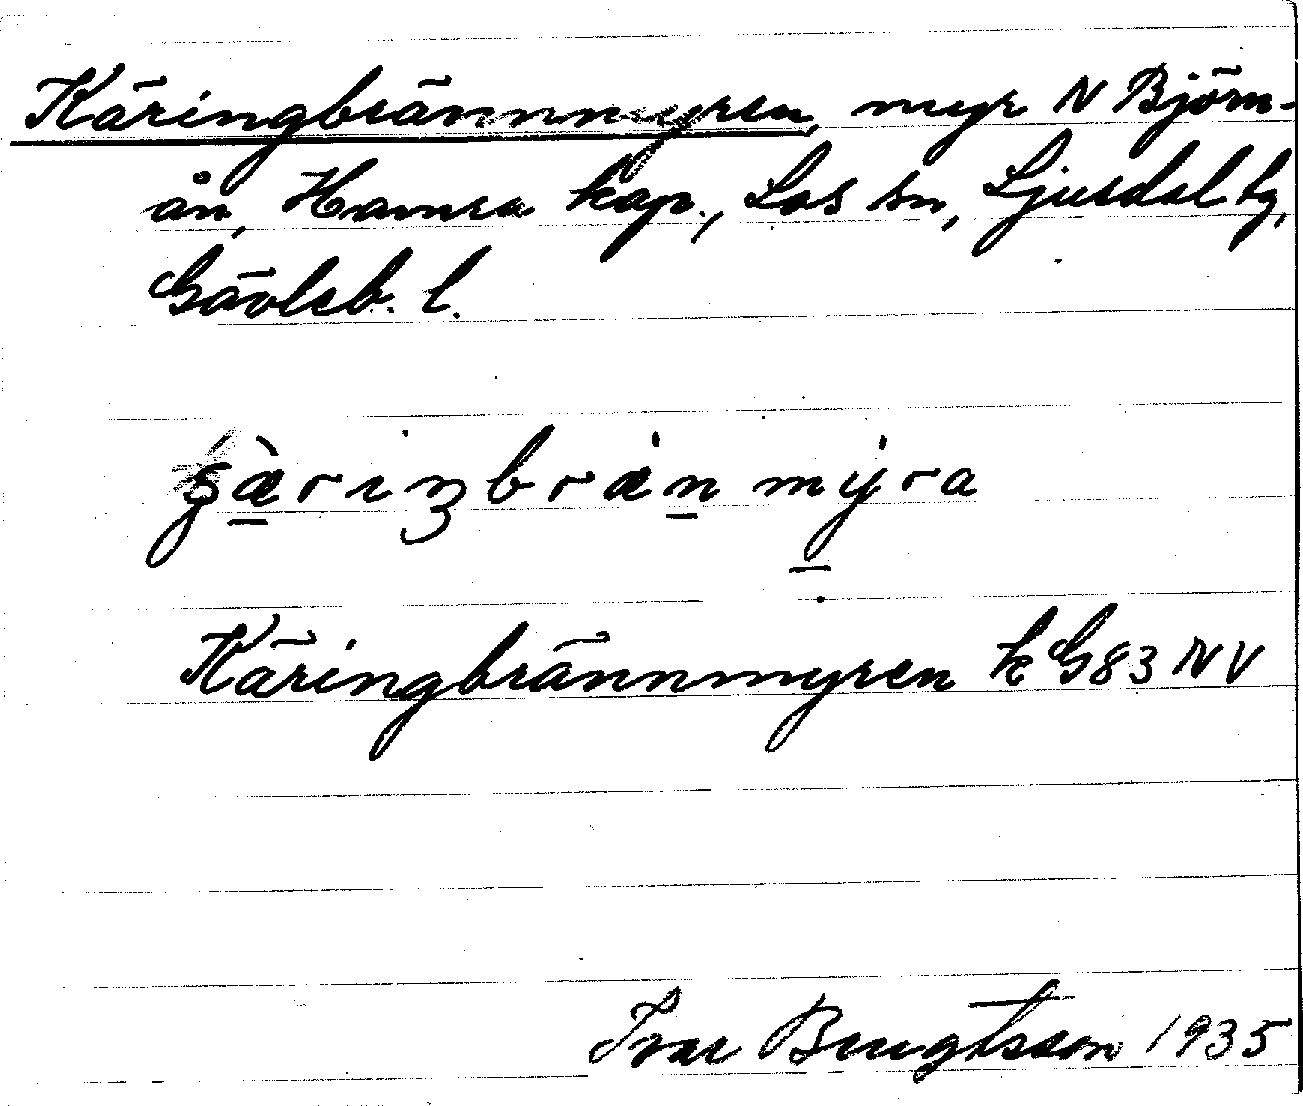 Käringbrännmyren, myr N Björn-
ån, Hamra kap., Los sn, Ljusdal tg,
Gävleb. l.
Käringbrännmyren k G83 NV
Ivar Bengtsson 1935